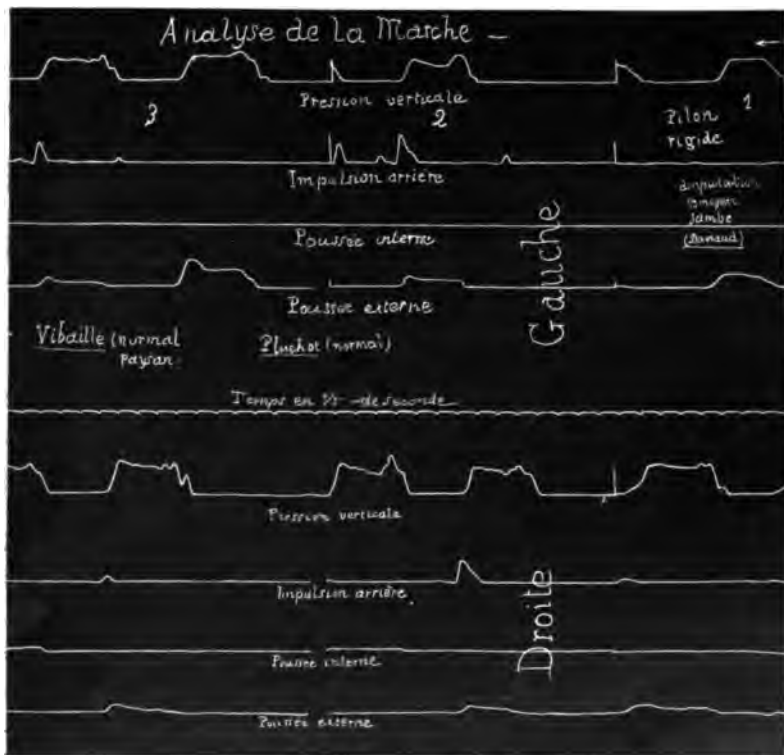 Analyse de La Marche —
Pression verticale
3
2
1
Pilon
rigide
Impulsion arrière
amputation
Jambe
Poussée interne
Gauche
Poussée externe
Vibaille (normal
paysan
Pluchot (normal)
Temps en 1/5 de seconde
Pression verticale
Impulsion arrière
Droite
Poussée interne
Poussée externe